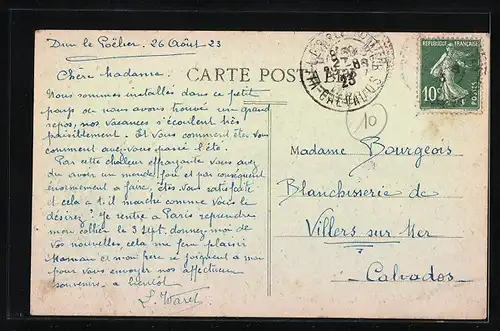 Dun le Poëlier. 26 Août 23
Chère Madame.
CARTE POSTALE
Nous sommes installés dans ce petit
pays où nous avons trouvé un grand
repos, nos vacances s'écoulent très
paisiblement. Et vous comment êtes-vous
comment avez-vous passé l'été.
Par cette chaleur effrayante vous avez
du avoir un monde fou et par conséquent
énormément à faire, êtes-vous satisfaite
et cela a t'il marché comme vous le
désirez? Je rentre à Paris reprendre
mon collier le 3 Sept. donnez-moi de
vos nouvelles, cela me fera plaisir
Maman et mon père se joignent à moi
pour vous envoyer nos affectueux
souvenirs. à bientôt
REPUBLIQUE FRANÇAISE
10c
POSTES
23
10
Madame Bourgeois
Blanchisserie de
Villers sur Mer
Calvados